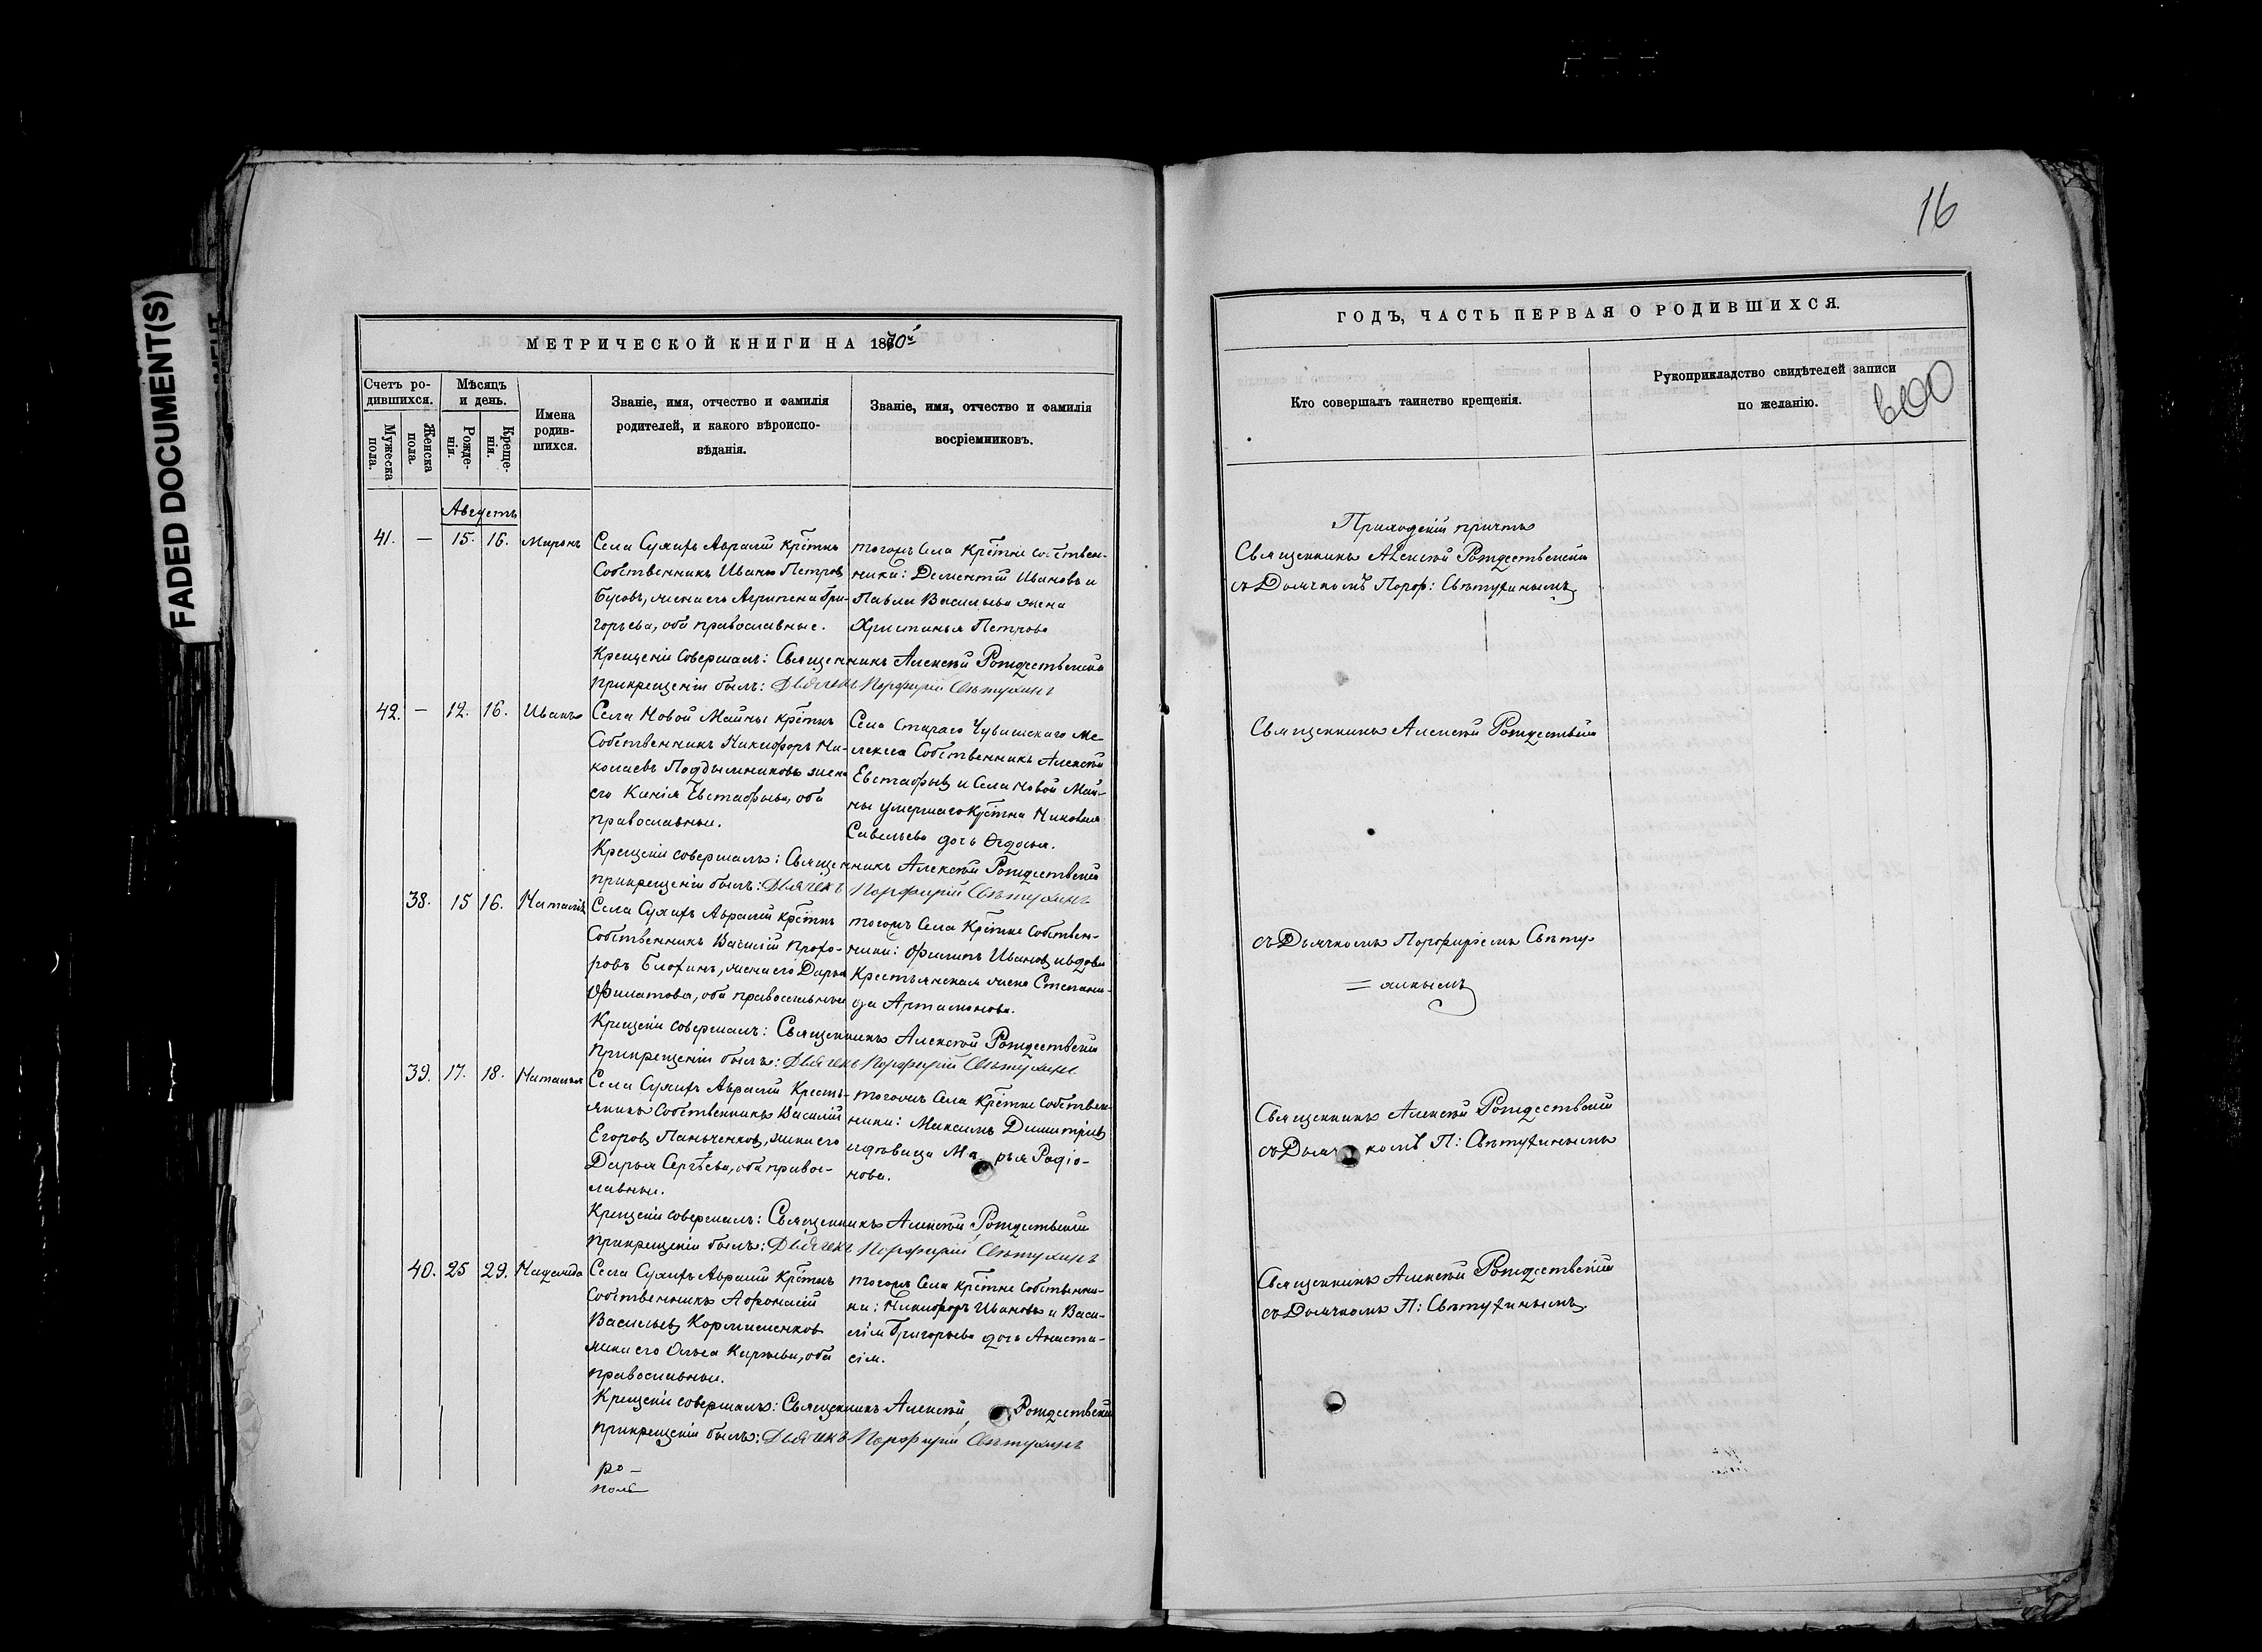 FADED DOCUMENT(S)
16
МЕТРИЧЕСКОЙ КНИГИ НА 1870й
Счетъ ро-
дившихся.
Мужеска
пола.
Женска
пола.
Мѣсяцъ
и день.
Рожде-
нія.
Креще-
нія.
Имена
родив-
шихся.
Званіе, имя, отчество и фамилія
родителей, и какого вѣроиспо-
вѣданія.
Званіе, имя, отчество и фамилія
воспріемниковъ.
Августъ
41. — 15. 16. Миронъ
Села Аврали Крестнъ
Собственникъ Иванъ Петровъ
жена его Агрипена Гри-
горьева, оба православные.
тогожъ села Крестне собствен-
ники: Дементій Ивановъ и
Павла Васильева жена
Христинья Петрова
Крещеніи Совершалъ: Священникъ Алексѣй Рождественскій
При крещеніи былъ: Дьячекъ Порфирій
42. — 12. 16. Иванъ
Села Новой Майны Крестнъ
Собственникъ Никифоръ Ни-
колаевъ жена
его Ксенія Евстафьева, оба
православные.
Села Стараго Чувашскаго Ме-
лекеса Собственникъ Алексѣй
Евстафьевъ и Села Новой Май-
ны умершаго Крестна
Савельева дочь
Крещеніи совершалъ: Священникъ Алексѣй Рождественскій
При крещеніи былъ: Дьячекъ Порфирій
38. 15 16. Наталія
Села Аврали Крестнъ
Собственникъ Василій Прохо-
ровъ Блохинъ, жена его Дарья
Филатова, оба православные
тогожъ Села Крестне Собствен-
ники: Филипъ Ивановъ и вдова
Крестьянская жена Степани-
да Артамонова.
Крещеніи совершалъ: Священникъ Алексѣй Рождественскій
При крещеніи былъ: Дьячекъ Порфирій
39. 17. 18. Наталья
Села Аврали Кресть-
янинъ Собственникъ Василій
Егоровъ Паньченковъ, жена его
Дарья Сергѣева, оба правос-
лавные.
тогожъ Села Крестне собствен-
ники: Максимъ Димитріевъ
и дѣвица Марья Родіо-
нова.
Крещеніи совершалъ: Священникъ Алексѣй Рождественскій
При крещеніи былъ: Дьячекъ Порфирій
40. 25 29. Надежда
Села Аврали Крестнъ
Собственникъ Афонасій
Васильевъ
жена его Ольга Карпова, оба
православные.
тогожъ Села Крестне Собственни-
ки: Никифоръ Ивановъ и Васи-
лія Григорьева дочь Анаста-
сія.
Крещеніи совершалъ: Священникъ Алексѣй Рождественскій
При крещеніи былъ: Дьячекъ Порфирій
ГОДЪ, ЧАСТЬ ПЕРВАЯ О РОДИВШИХСЯ.
Кто совершалъ таинство крещенія.
Рукоприкладство свидѣтелей записи
по желанію.
Приходскій причтъ
Священникъ Алексѣй Рождественскій
съ Дьячкомъ Порф:
Священникъ Алексѣй Рождественскій
съ Дьячкомъ Порфиріемъ
Священникъ Алексѣй Рождественскій
съ Дьячкомъ П:
Священникъ Алексѣй Рождественскій
съ Дьячкомъ П: